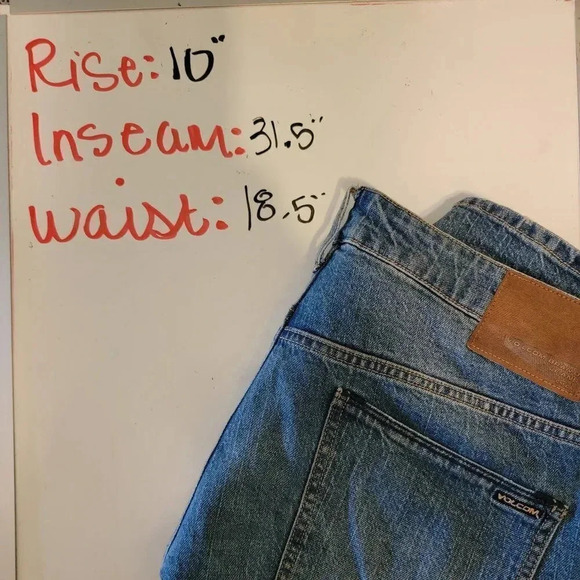 Rise: 10"
Inseam: 31.5"
waist: 18.5"
VOLCOM